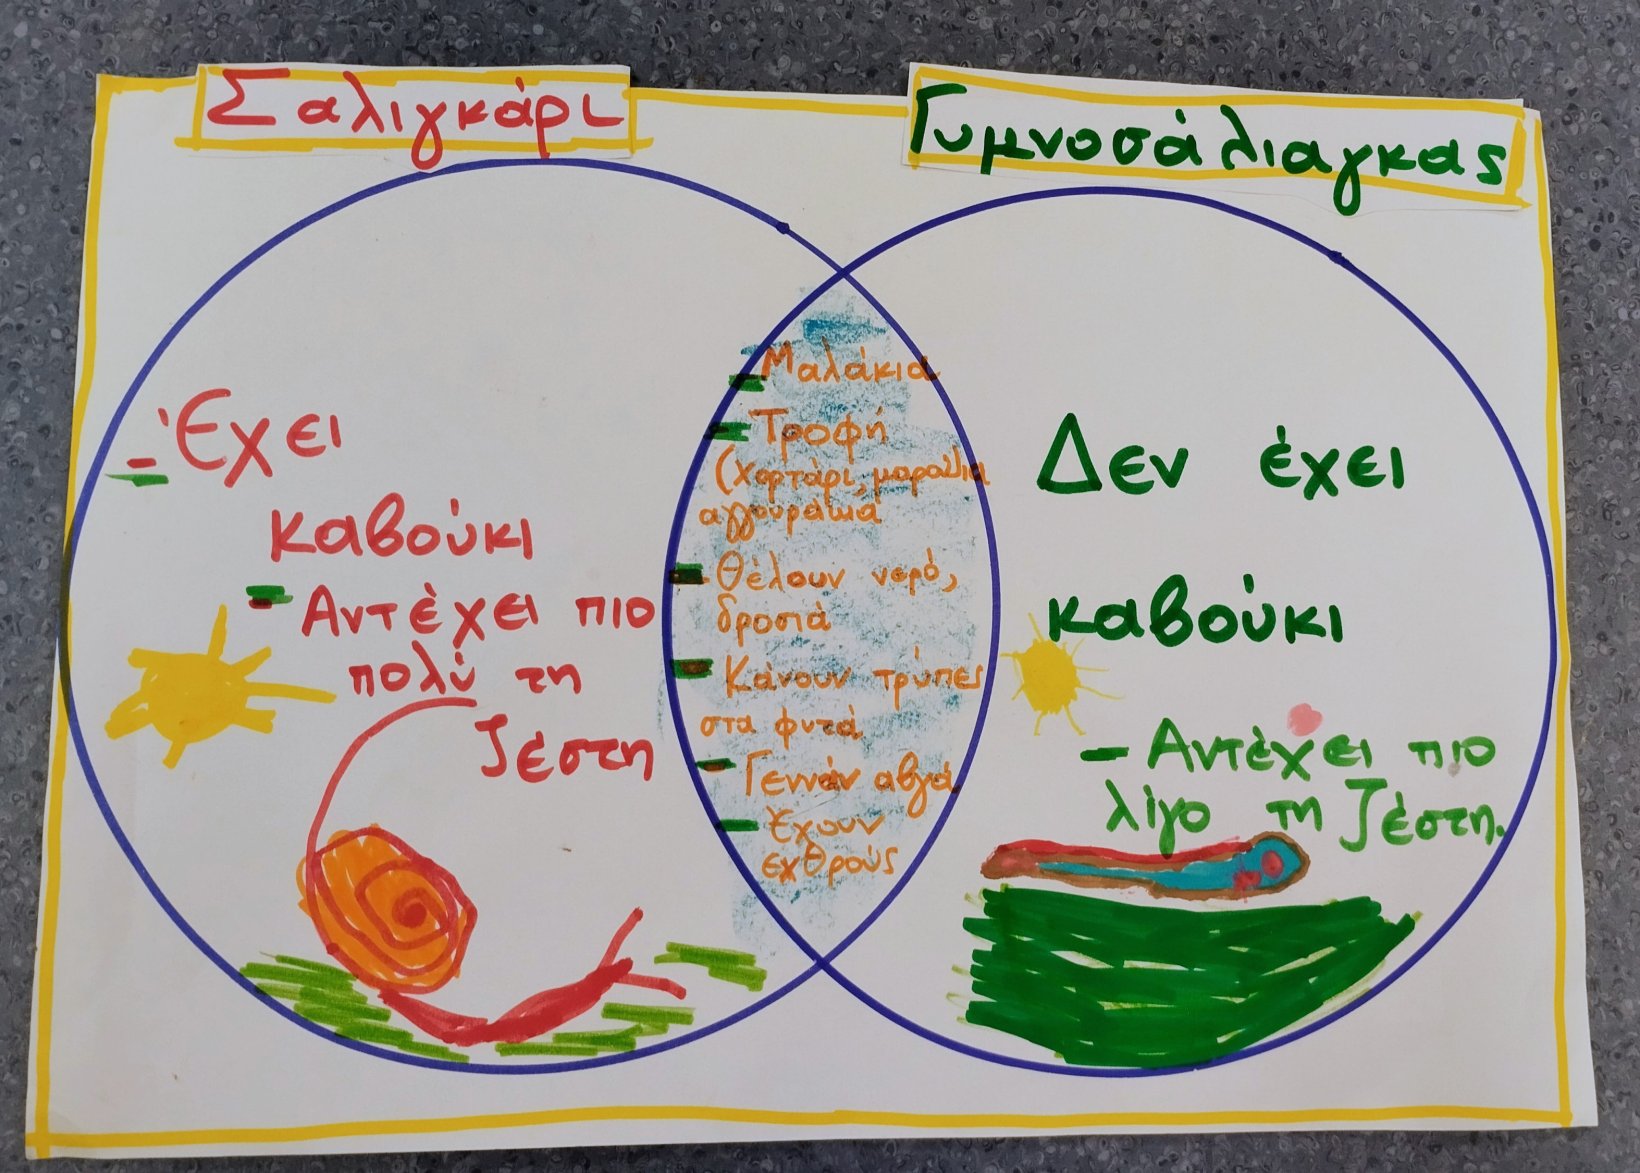 Σαλιγκάρι
Γυμνοσάλιαγκας
- Έχει
καβούκι
- Αντέχει πιο
πολύ τη
ζέστη
- Μαλάκια
- Τροφή
(χορτάρι, μαρούλια
αγγουράκια
- Θέλουν νερό,
δροσιά
- Κάνουν τρύπες
στα φυτά
- Γεννάν αβγά
- Έχουν
εχθρούς
Δεν έχει
καβούκι
- Αντέχει πιο
λίγο τη ζέστη.